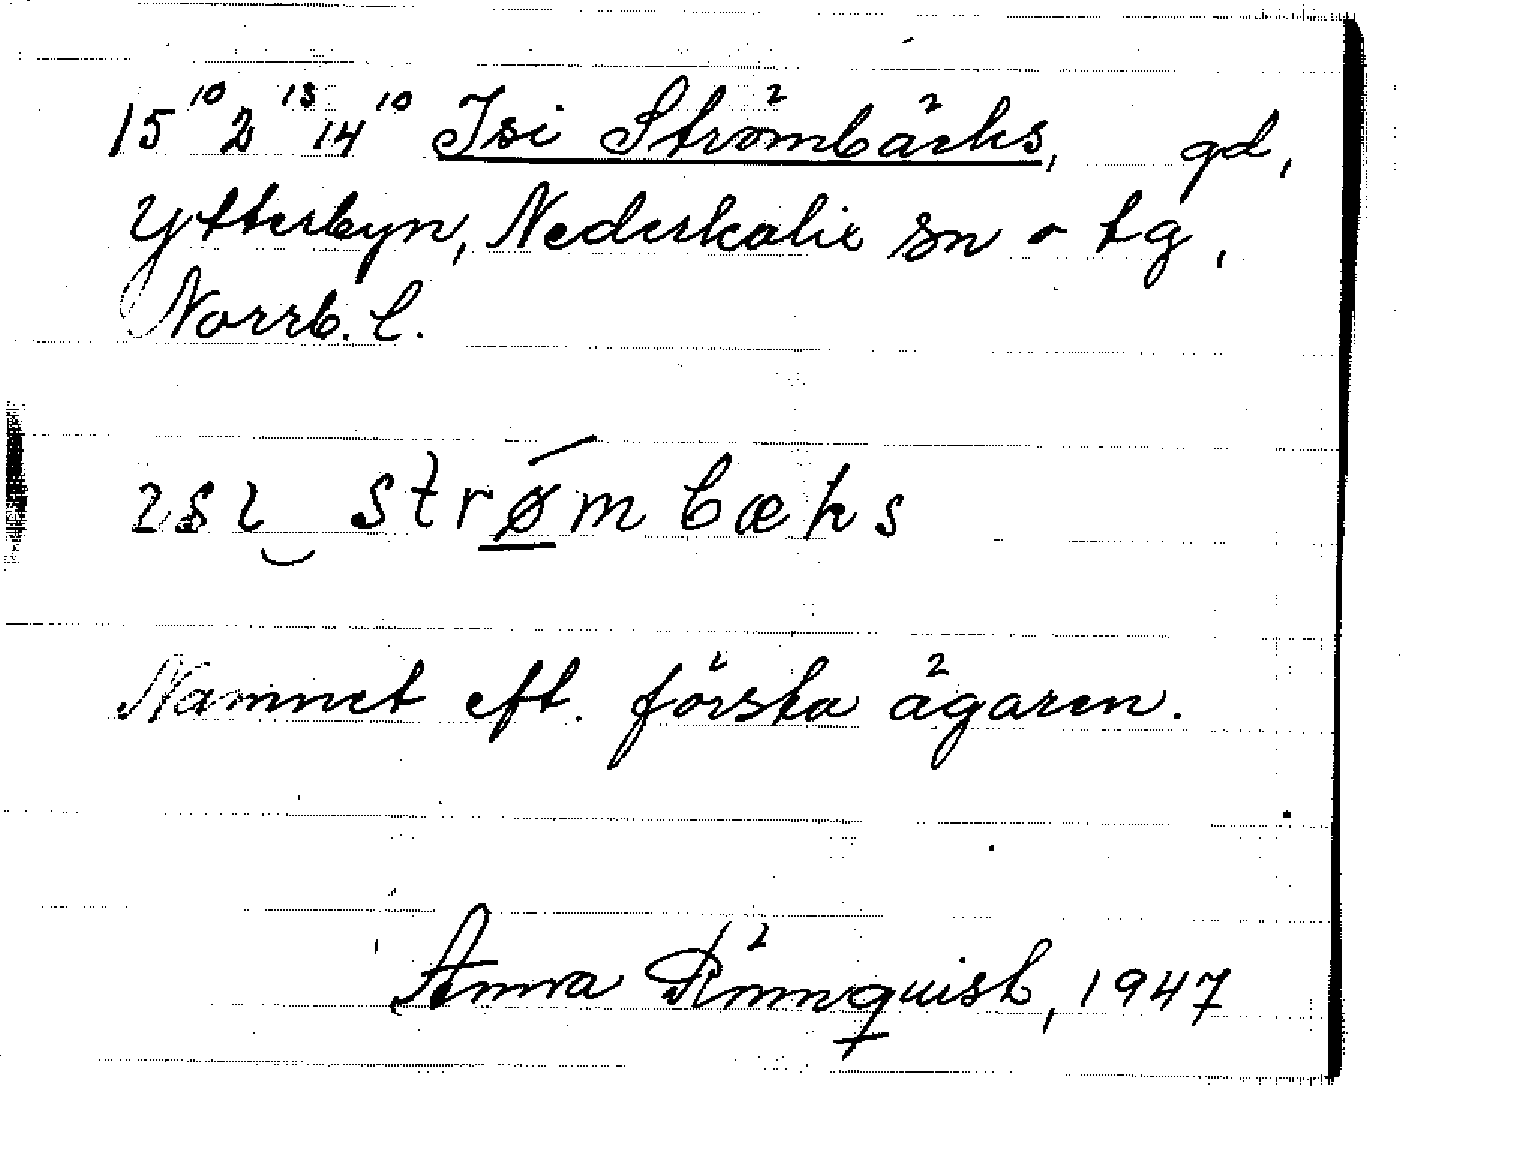 15¹⁰ 2¹⁸ 14¹⁰ Isi Strömbäcks, gd,
Ytterbyn, Nederkalix sn o tg,
Norrb. l.
ısı‿ strǿ̲mbæks
Namnet eft. första ägaren.
Anna Rönnquist, 1947